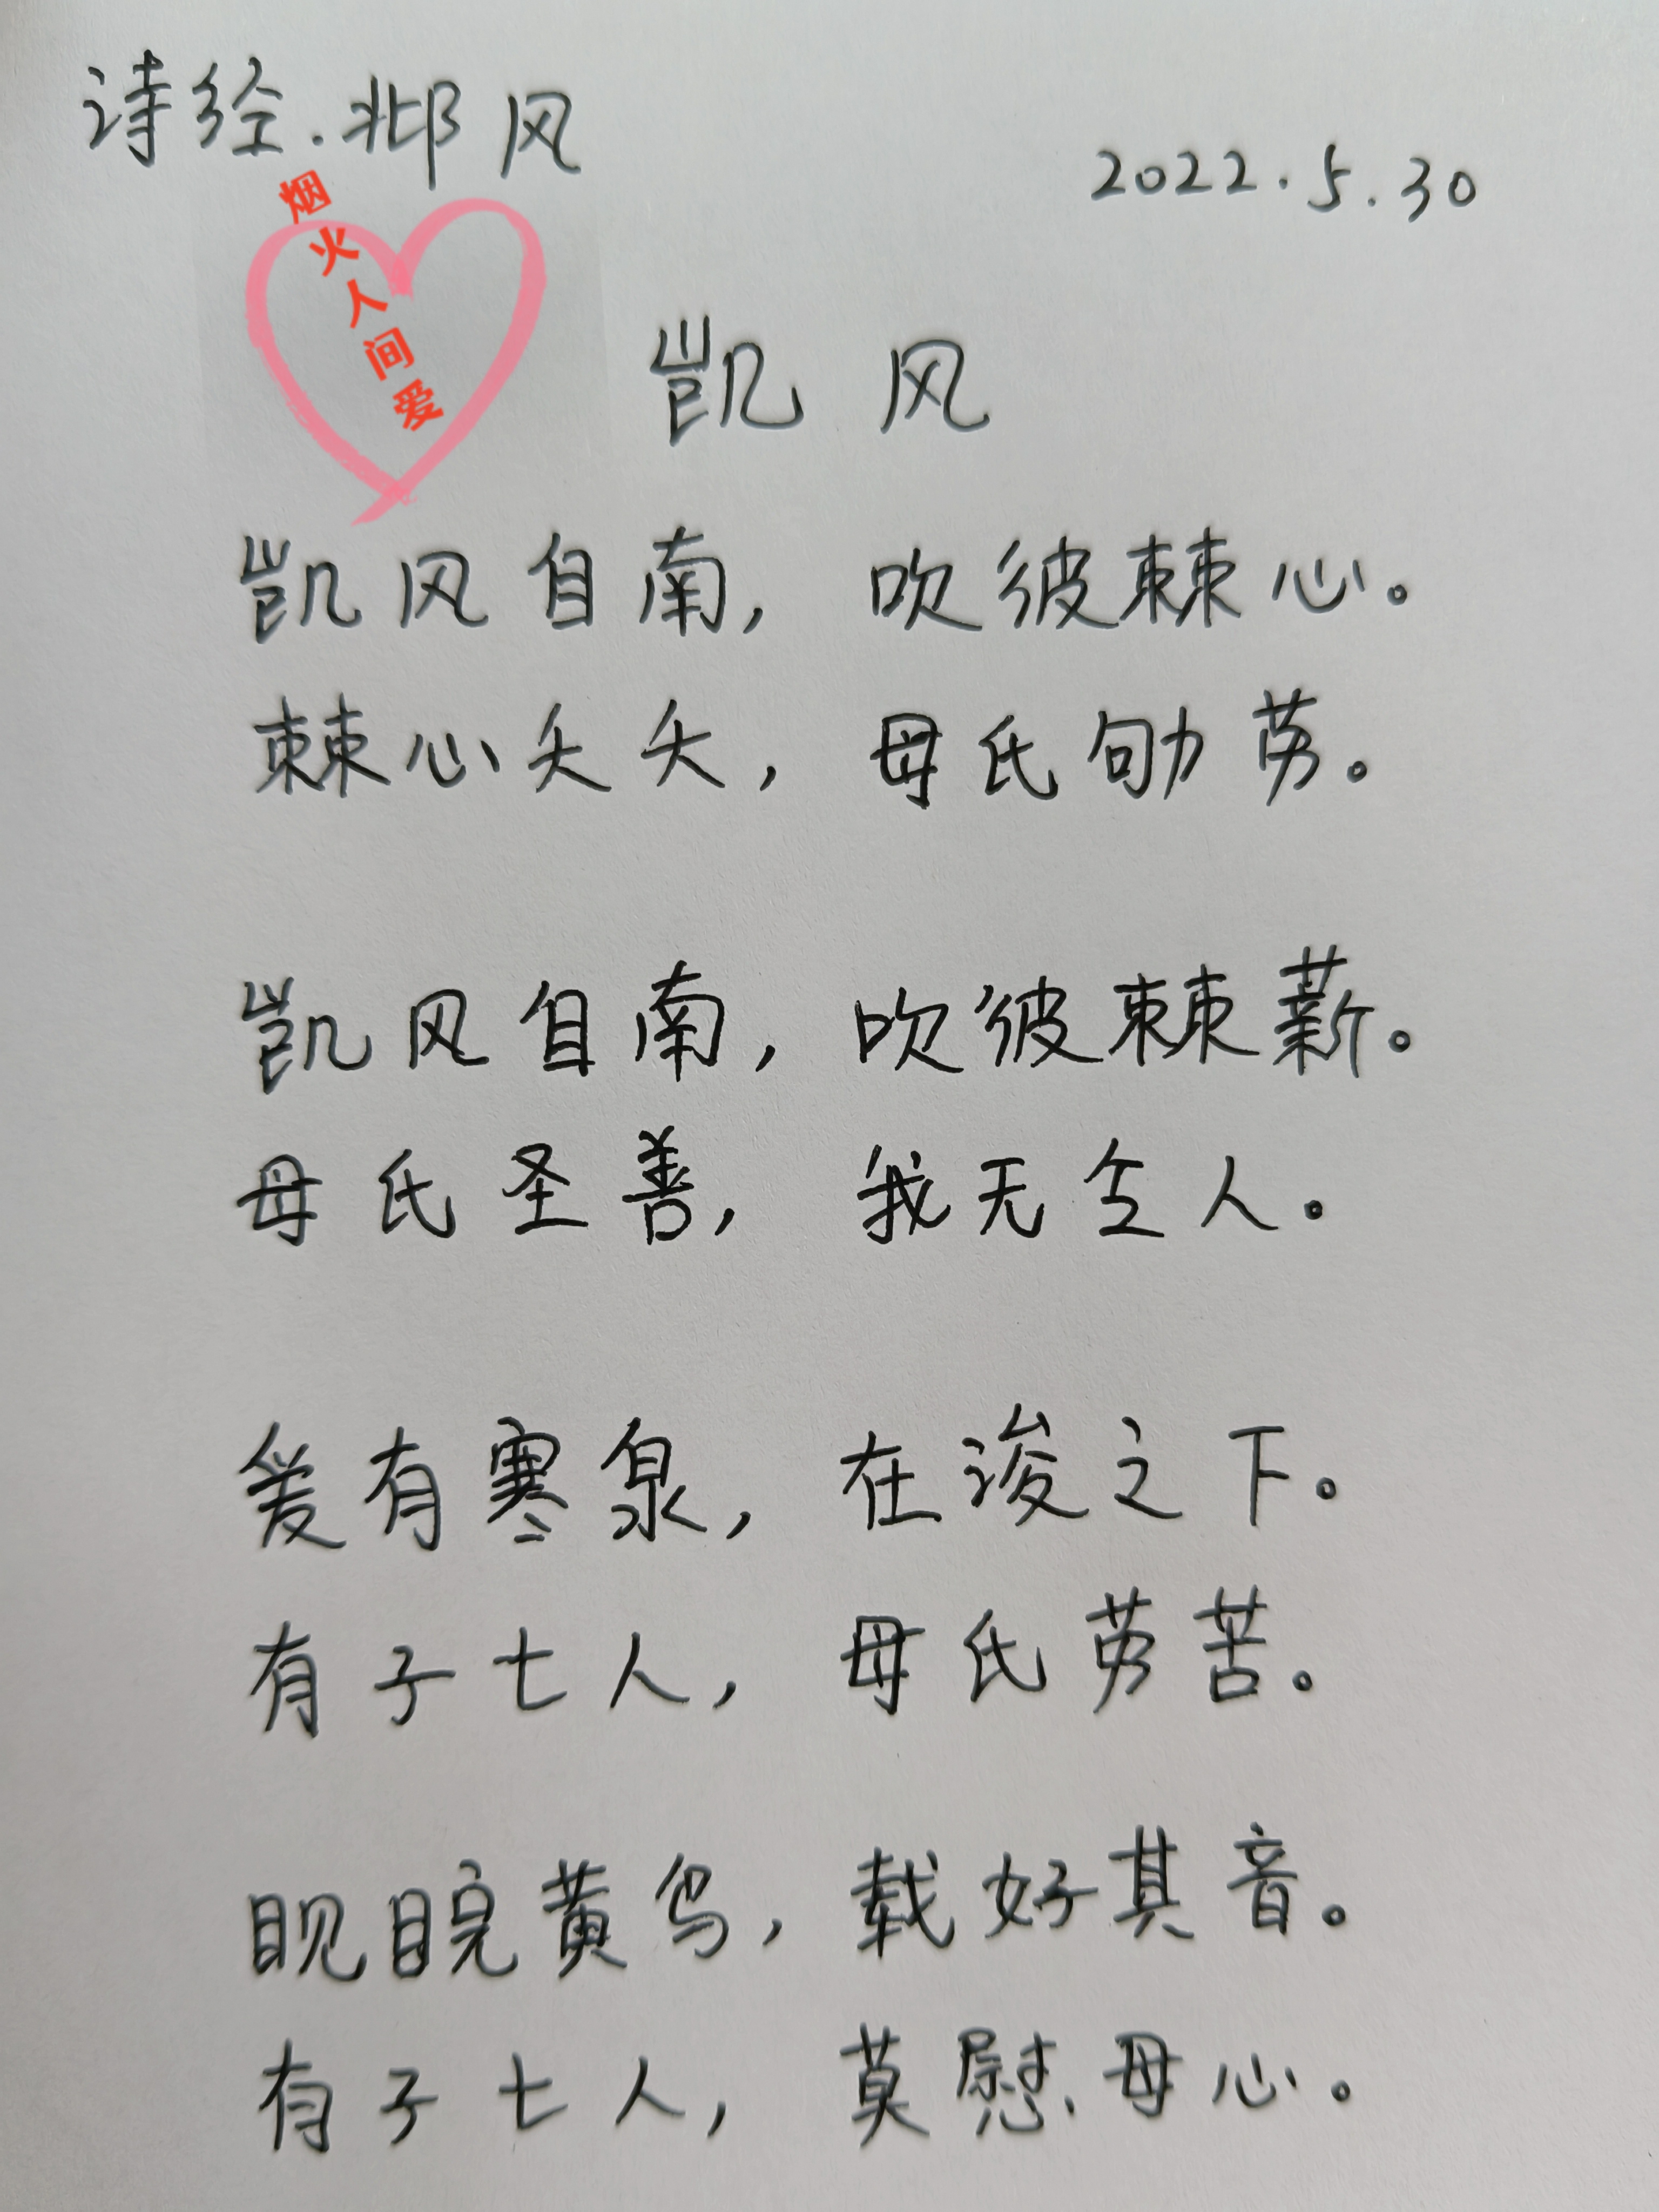 诗经·邶风
2022.5.30
烟火人间爱
凯风
凯风自南，吹彼棘心。
棘心夭夭，母氏劬劳。
凯风自南，吹彼棘薪。
母氏圣善，我无令人。
爰有寒泉，在浚之下。
有子七人，母氏劳苦。
睍睆黄鸟，载好其音。
有子七人，莫慰母心。